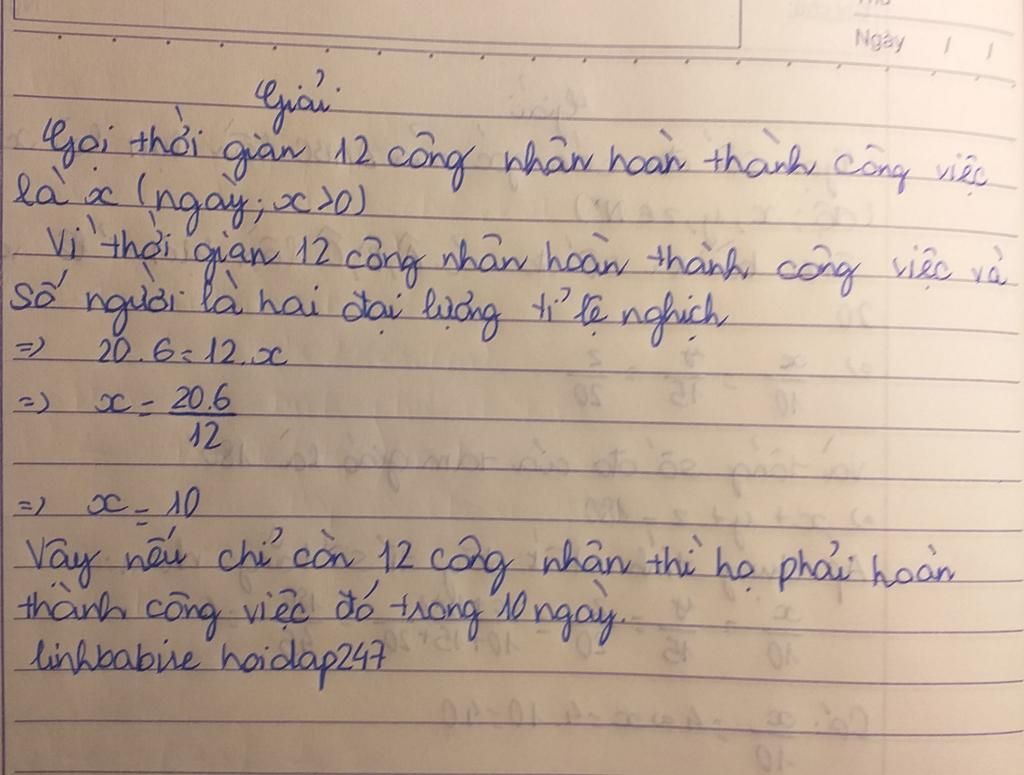 Ngày / /
Giải
Gọi thời gian 12 công nhân hoàn thành công việc
là x (ngày; x>0)
Vì thời gian 12 công nhân hoàn thành công việc và
số người là hai đại lượng tỉ lệ nghịch
=> 20.6=12.x
=> x = 20.6/12
=> x = 10
Vậy nếu chỉ còn 12 công nhân thì họ phải hoàn
thành công việc đó trong 10 ngày.
linhbabise hoidap247